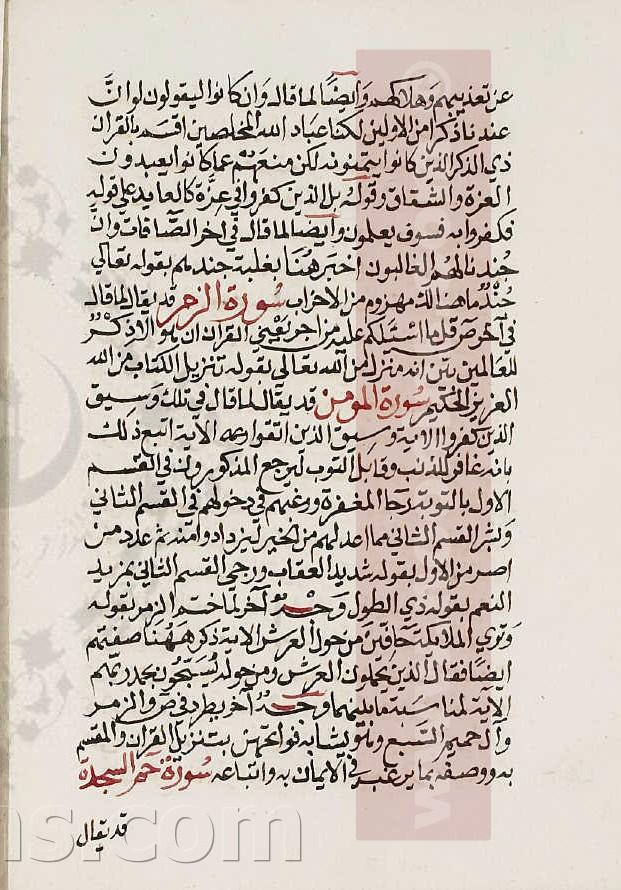 عن تعذيبهم وهلاكهم وايضًا لما قال وان كانوا ليقولون لو انَّ
عندنا ذكرا من الاولين لكنا عباد الله المخلصين اقسم بالقران
ذي الذكر الذين كانوا يتمنونه لكن منعهم عما كانوا يعبدون
العزة والشقاق وقوله بل الذين كفروا في عزة كالعايد علي قوله
فكفروا به فسوف يعلمون وايضا لما قال في اخر الصَّافات وانَّ
جُندنا لهم الغالبون اخبر هُنا بغلبة جندهم بقوله تعالي
جُنْدٌ ما هنالك مهزوم من الاحزاب سُورة الزمر قد يقال لما قال
في اخر ص قل ما اسئلكم عليه من اجر يَعْني القران ان هو الا ذكرٌ
للعالمين بين انه منزل من الله تعالي بقوله تنزيل الكتاب من الله
العزيز الحكيم سُورة المومن قد يقال لما قال في تلك وسيق
الذين كفروا الاية وسيق الذين اتقوا ربهم الاية اتبع ذلك
بانه غافر للذنب وقابل التوب ليرجع المذكورون في القسم
الاول بالتوبة رجا المغفرة ورغبهم في دخولهم في القسم الثاني
وبشر القسم الثاني مما اعد لهم من الخير ليزدادوا منه ثم عدد من
اصر من الاول بقوله شديد العقاب ورجي القسم الثاني بمزيد
النعم بقوله ذي الطول وَحْدٌ آخر لما ختم الزمر بقوله
وَتري الملائكة حَافّين من حول العرش الاية ذكر هَهُنا صفتهم
ايضًا فقال الذين يحملون العرش ومن حوله يُسَبّحُون بحمد ربهم
الآية لمناسبة ما بينهما وحَدٌّ آخر يطرد في ص والزمر
وآل حميم السَّبع وهو تشابه فواتحهن بتنزيل القران والمقسم
به ووصفه بما يرغب في الايمان به واتباعه سُورة حم السجدة
قد يقال
ns.com